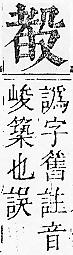 譌字舊註音
峻築也誤